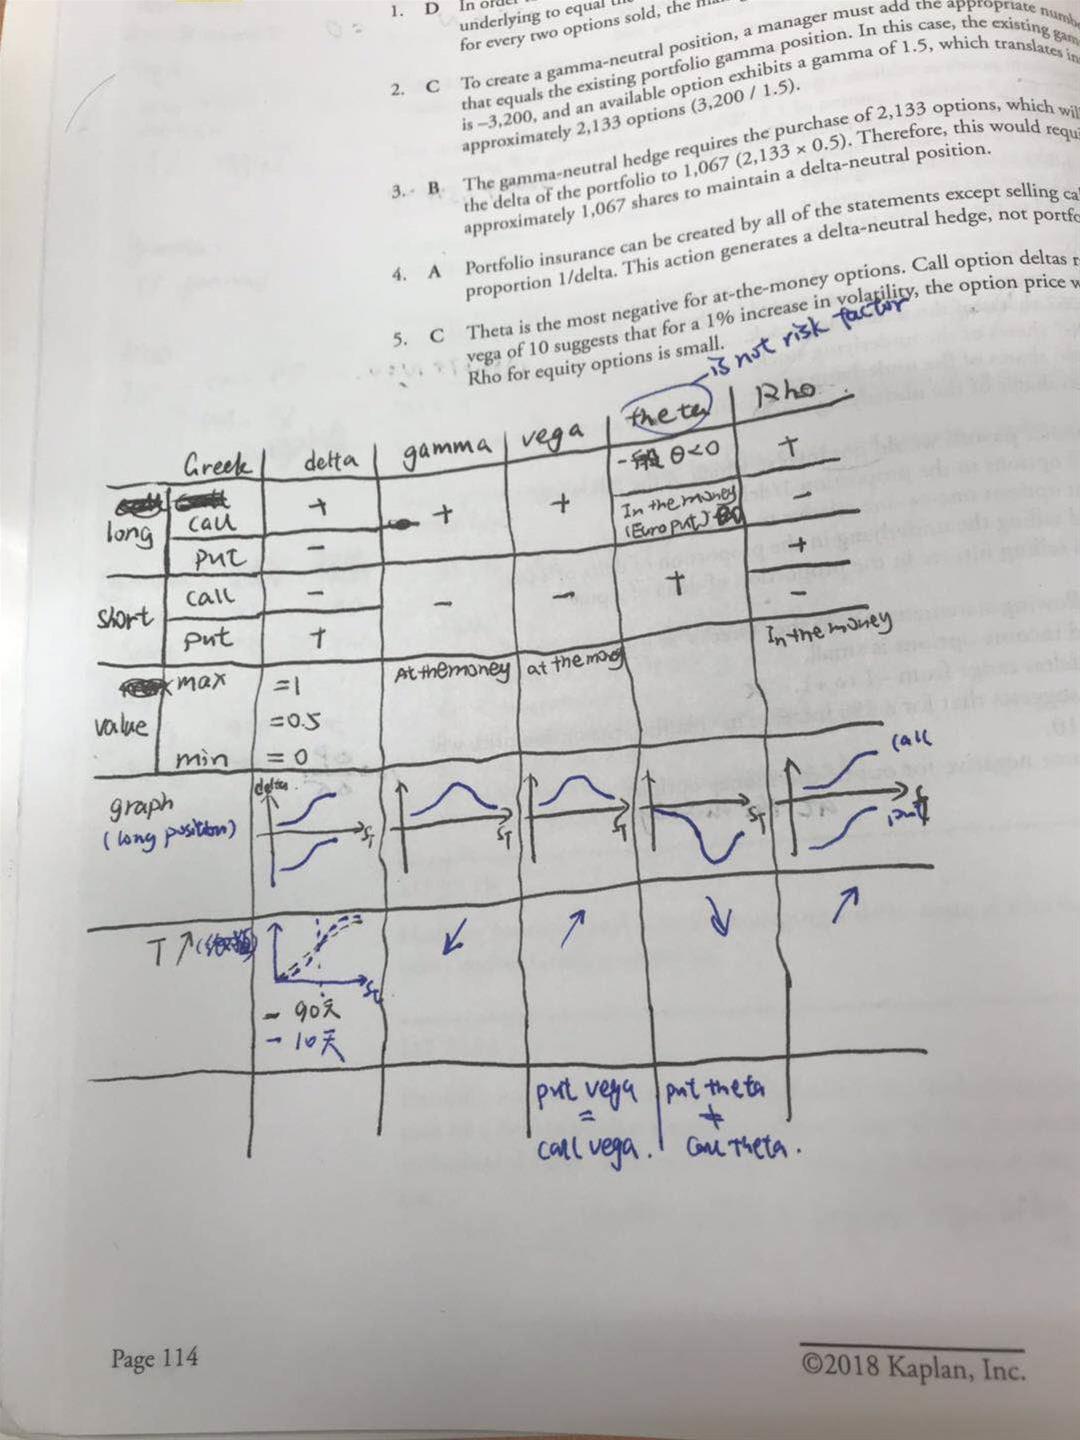 1. D In order
underlying to equal the
for every two options sold, the
2. C To create a gamma-neutral position, a manager must add the appropriate numb
that equals the existing portfolio gamma position. In this case, the existing gam
is –3,200, and an available option exhibits a gamma of 1.5, which translates in
approximately 2,133 options (3,200 / 1.5).
3. B The gamma-neutral hedge requires the purchase of 2,133 options, which wil
the delta of the portfolio to 1,067 (2,133 × 0.5). Therefore, this would requi
approximately 1,067 shares to maintain a delta-neutral position.
4. A Portfolio insurance can be created by all of the statements except selling ca
proportion 1/delta. This action generates a delta-neutral hedge, not portfo
5. C Theta is the most negative for at-the-money options. Call option deltas r
vega of 10 suggests that for a 1% increase in volatility, the option price w
Rho for equity options is small.
is not risk factor
Greek delta gamma vega theta Rho
一般 θ<0 +
long call + + + In the money –
(Euro put)
put – +
short call – – – + –
put +
In the money
max =1 At the money at the money
value =0.5
min =0
graph delta call
(long position) ST ST ST ST put
T↗ ↙ ↗ ↘ ↗
- 90天
- 10天
put vega put theta
= ≠
call vega. call theta.
Page 114
©2018 Kaplan, Inc.